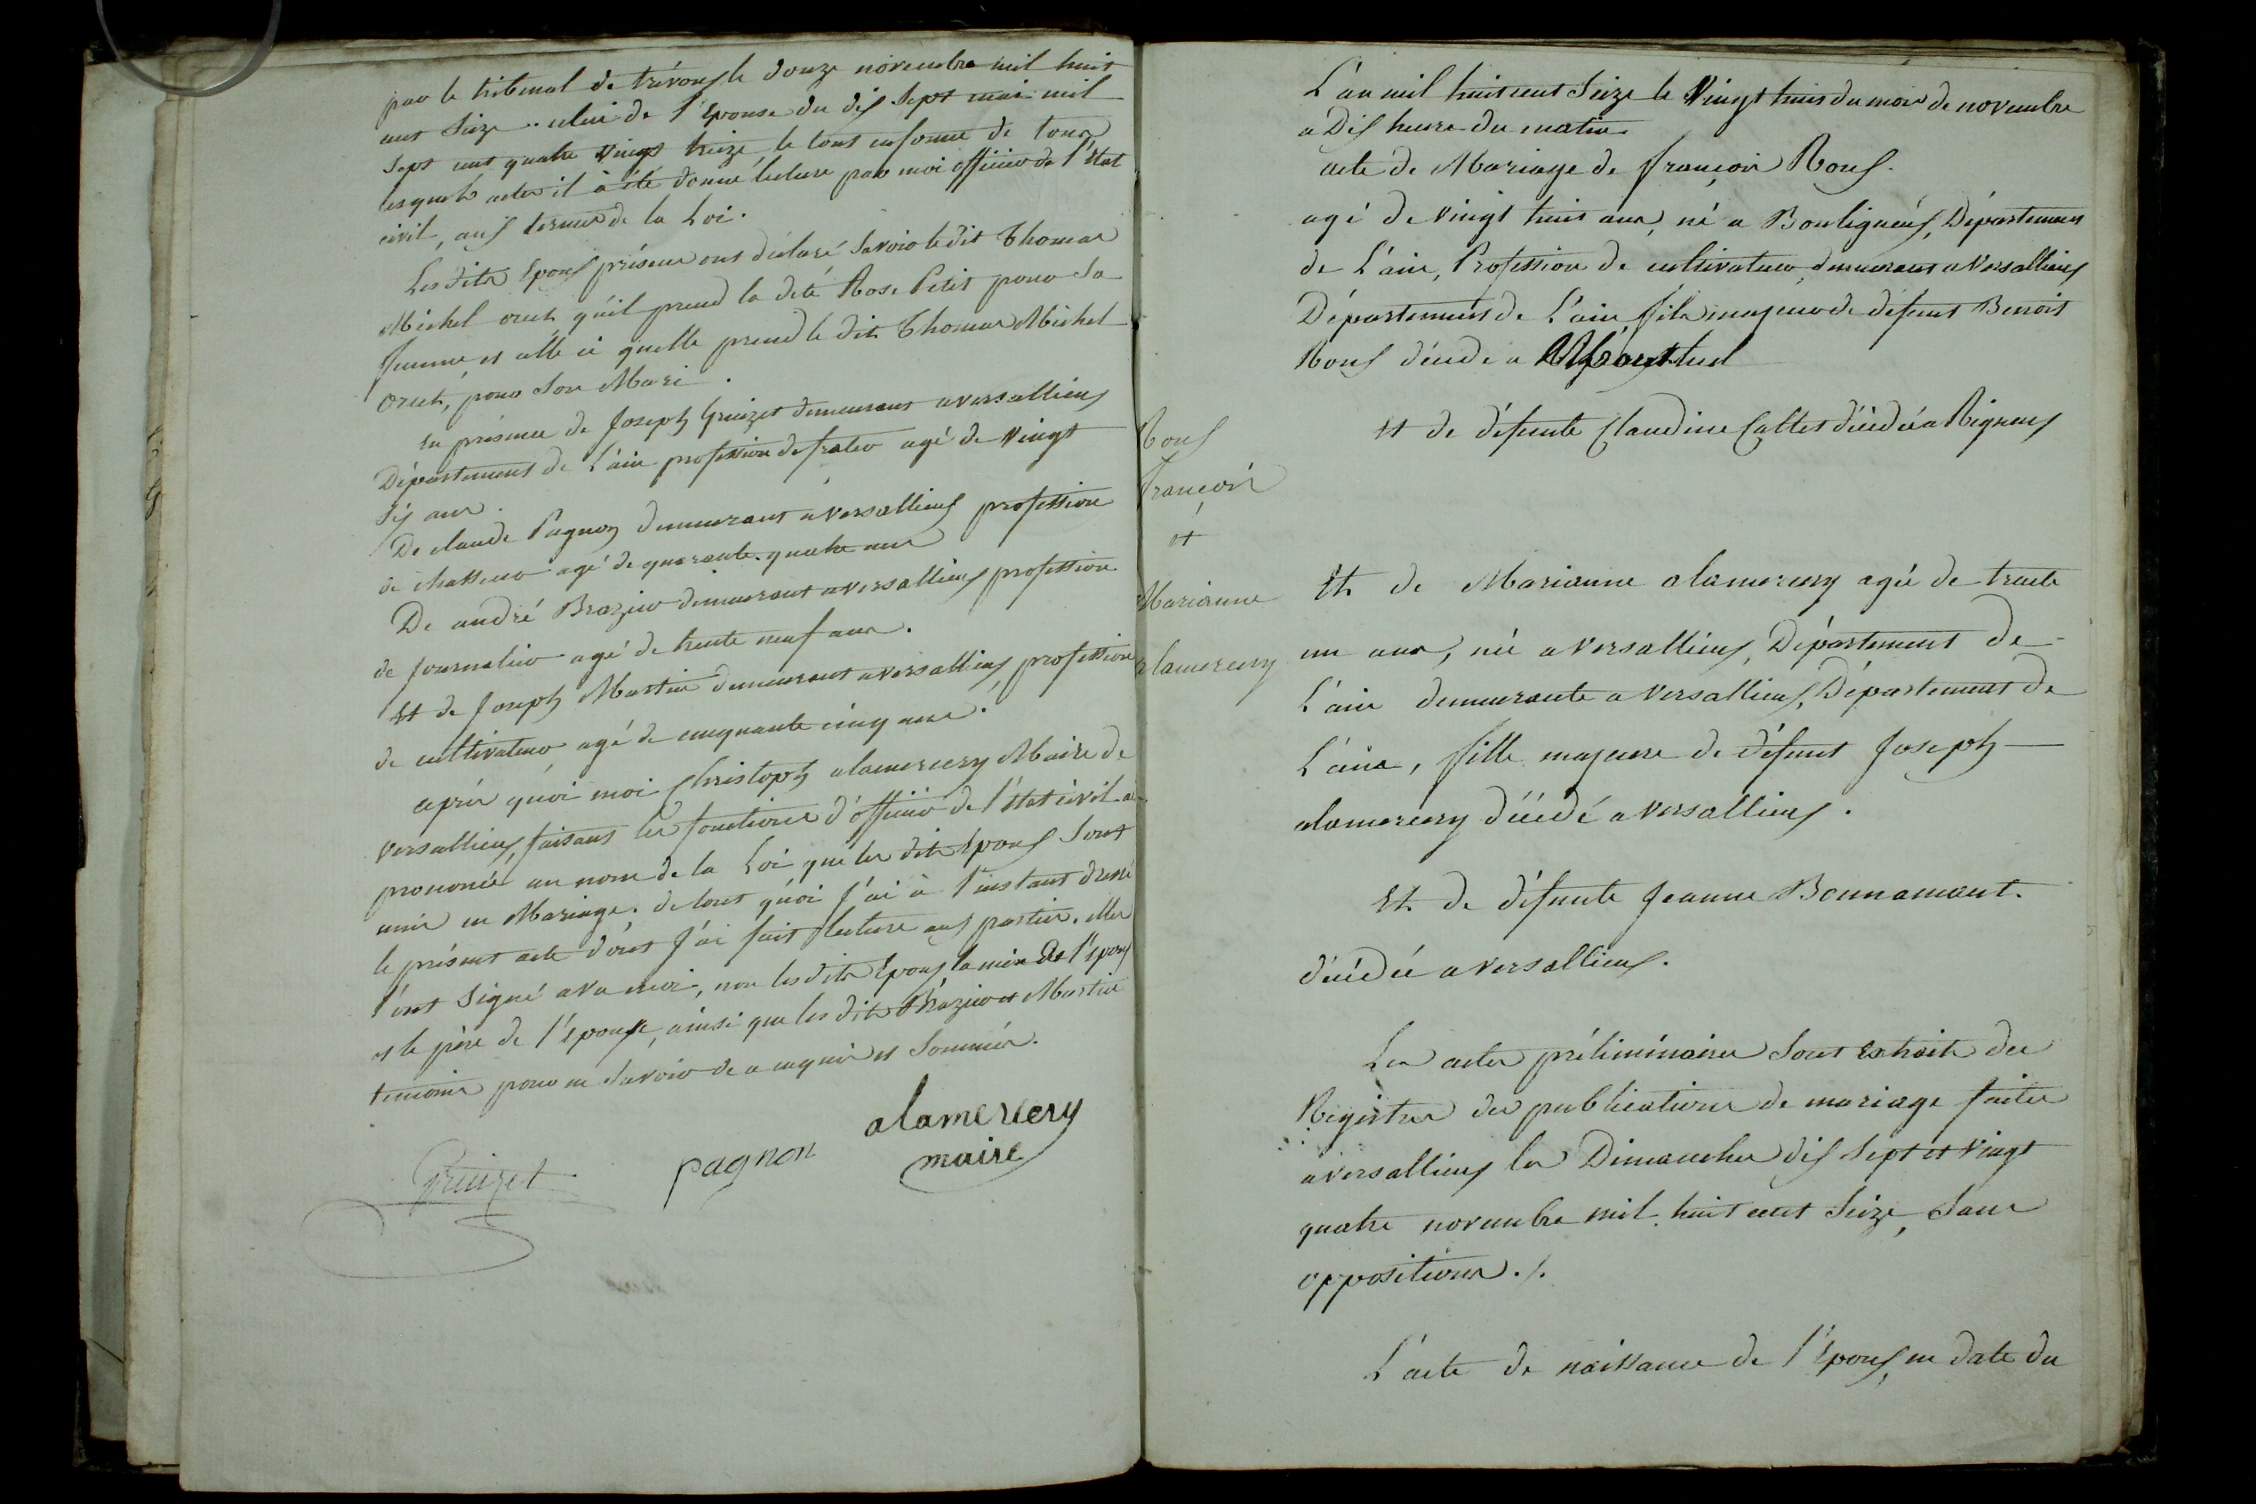 par le tribunal de trévoux le douze novembre mil huit
cent Seize. celui de l'épouse du dix Sept mai mil
Sept cent quatre vingt treize, le tout en forme de tous
lesquels actes il à été donné lecture par moi officier de l'état
civil, aux termes de la Loi.
Les dits Epoux présens ont déclaré Savoir le dit Thomas
Michel qu'il prend la dete Rose Petit pour Sa
femme, et celle ci quelle prend le dit Thomas Michel
pour Son Mari.
En présence de Joseph Gruizet demeurant a versallieux
Département de L'ain profession de frater agé de Vingt
Six ans.
De claude Pagnon demeurant a versallieux profession
de chasseur agé de quarante quatre ans
De andré Brazier demeurant a versallieux profession
de journalier agé de trente neuf ans.
Et de Joseph Martin demeurant a versallieux, profession
de cultivateur, agé de cinquante cinq ans.
après quoi moi Christoph alamercery Maire de
versallieux, faisant les fonctions d'officier de l'état civil ai
prononcé au nom de la Loi que les dits Epoux Sont
unis en Mariage. de tout quoi j'ai à l'instant dressé
le présent acte dont j'ai fait lecture aux parties. Elles
l'ont Signé avec moi, non les dits Epoux, la mère de l'époux
et le père de l'épouse, ainsi que les dits Brazier et Martin
temoins pour ne Savoir de ce enquis et Sommés.
alamercery
maire
pagnon
Gruizet
L'an mil huit cent Seize le Vingt huit du mois de novembre
a Dix heures du matin
acte de Mariage de françois Roux.
agé de vingt huit ans, né a Bouligneux, Département
de L'ain, Profession de cultivateur, demeurant a Versallieux
Département de L'ain, fils majeur de défunt Benoit
Roux décédé a Montluel
Et de défunte Claudine Caltet décédée a Rigneux
Roux
françois
et
Marianne
alamercery
Et de Marianne alamercery agée de trente
un ans, née a versallieux, Département de
L'ain demeurante a versallieux, Département de
L'ain, fille majeure de défunt Joseph
alamercery décédé a versallieux.
Et de défunte Jeanne Bonnamant.
décédée a versallieux.
Les actes préliminaires Sont extraits des
Registres des publications de mariage faites
a versallieux les Dimanches dix Sept et Vingt
quatre novembre mil huit cent Seize, Sans
oppositions ./.
L'acte de naissance de l'époux, en date du